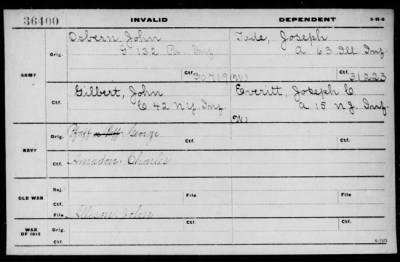 36400 INVALID DEPENDENT 3-11-6
Osbern, John Tude, Joseph
Orig. G 132 Pa Inf A 63 Ill Inf
ARMY Ctf. (W) Ctf. 31223
Gilbert, John Everitt, Joseph C
Ctf. C 42 N.Y. Inf A 15 N.J. Inf
(W)
Orig. George
NAVY
Ctf. Amadon, Charles
Rej.
OLD WAR Ctf. File File
File Allison, John
WAR OF 1812 Orig. Ctf. Ctf.